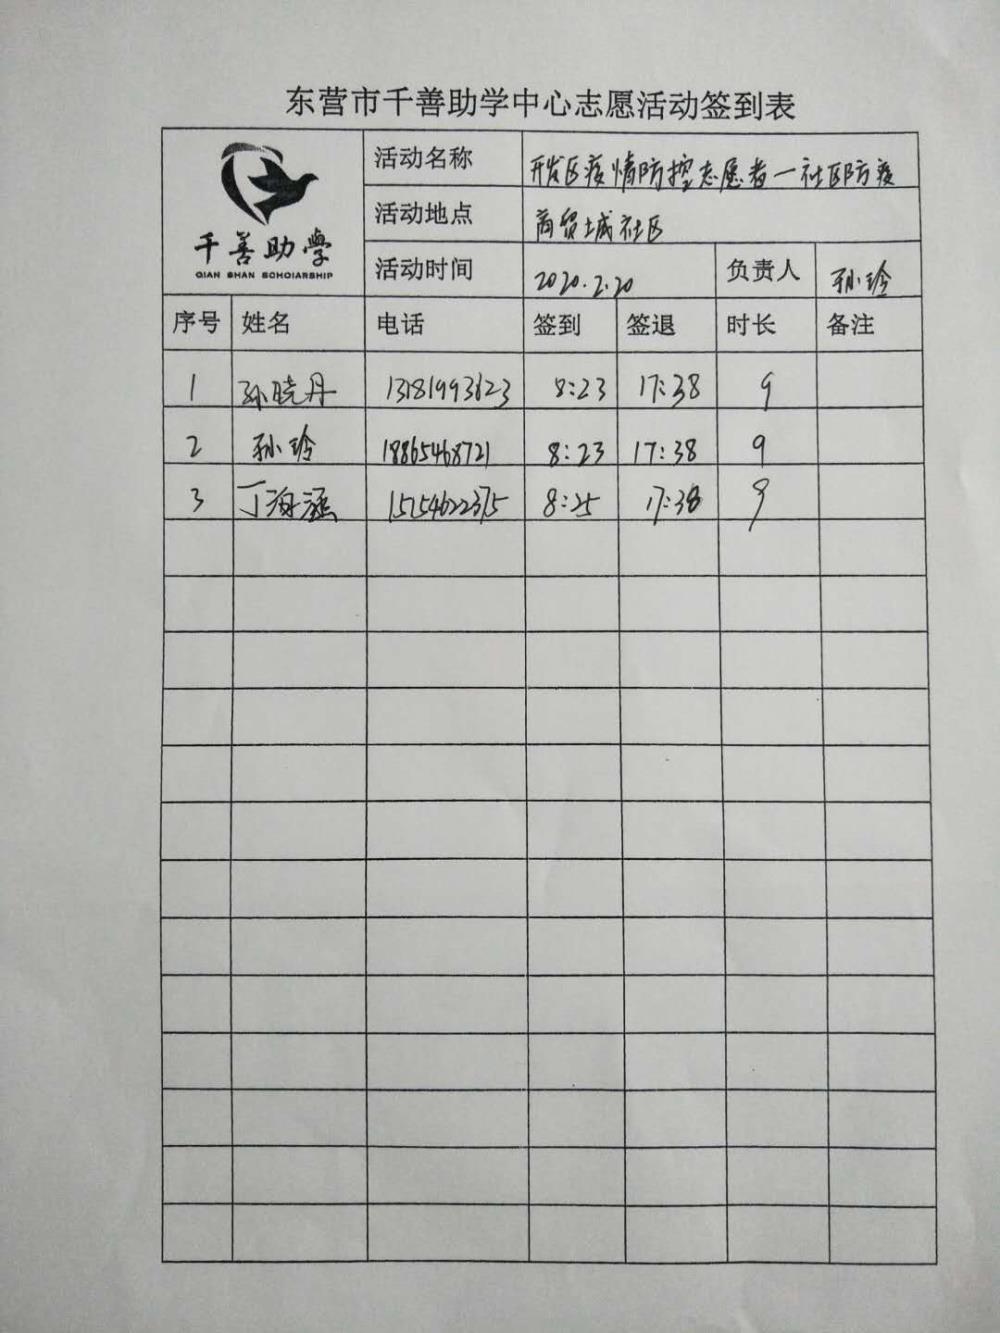 东营市千善助学中心志愿活动签到表
千善助學
QIAN SHAN SCHOIARSHIP
活动名称 开发区疫情防控志愿者一社区防疫
活动地点 商贸城社区
活动时间 2020.2.20 负责人 孙玲
序号 姓名 电话 签到 签退 时长 备注
1 孙晓丹 13181993623 8:23 17:38 9
2 孙玲 18865468721 8:23 17:38 9
3 丁海涵 15154622375 8:25 17:38 9